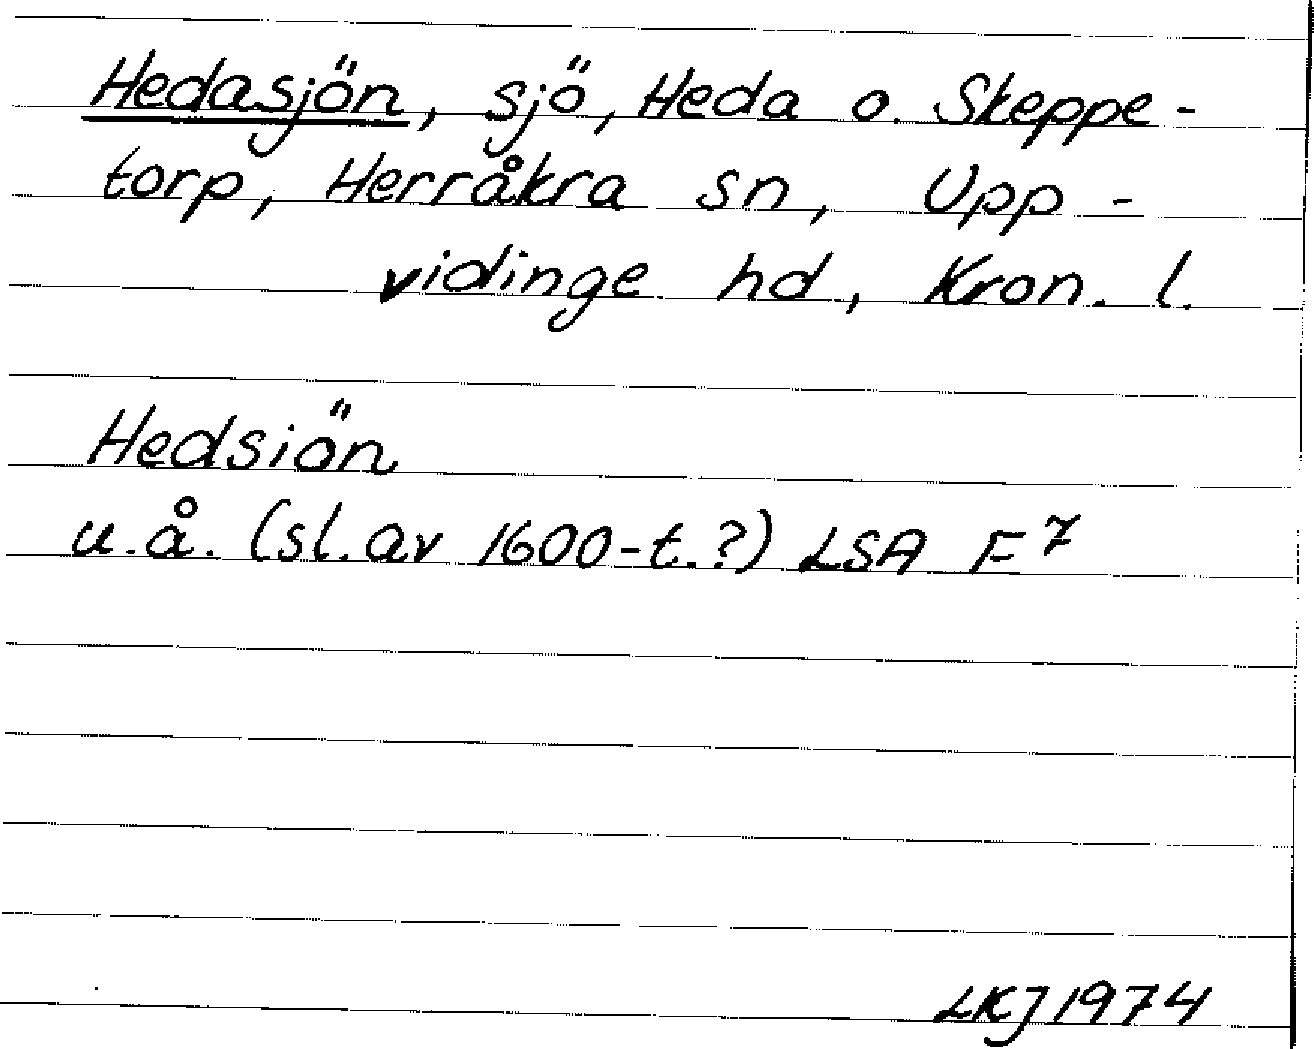 Hedasjön, sjö, Heda o. Skeppe-
torp, Herråkra sn, Upp-
vidinge hd, Kron. l.
Hedsiön
u.å. (sl. av 1600-t.?) LSA F7
LKJ 1974